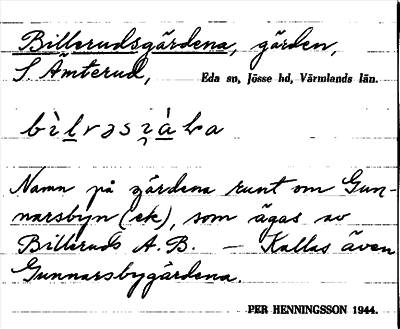 Billerudsgärdena, gärden,
S. Åmterud,
Eda sn, Jösse hd, Värmlands län.
Namn på gärdena runt om Gun-
narsbyn (ek), som ägas av
Billeruds A.B. — Kallas även
Gunnarsbygärdena.
PER HENNINGSSON 1944.